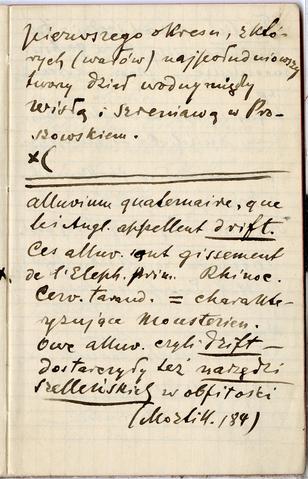 pierwszego okresu, z któ-
rych (wałów) najpołudniowszy
tworzy dział wodny między
Wisłą i Szreniawą w Pro-
szowskiem.
x(
alluvium quaternaire, que
les Angl. appellent drift.
Ces alluv. ont gissement
x de l'Eleph. prim. Rhinoc.
Cerv. tarand. = charakte-
ryzujące Mousterien.
Owe alluv. czyli drift –
dostarczyły też narzędzi
szelleńskich w obfitości
(Mortill. 184)